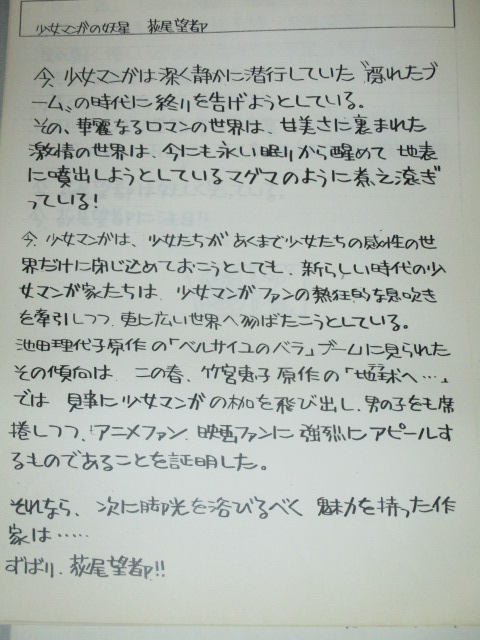 少女マンガの妖星 萩尾望都
今、少女マンガは深く静かに潜行していた〝隠れたブ
ーム〟の時代に終りを告げようとしている。
その、華麗なるロマンの世界は、甘美さに裏まれた
激情の世界は、今にも永い眠りから醒めて 地表
に噴出しようとしているマグマのように煮え滾ぎ
っている!
今、少女マンガは、少女たちがあくまで少女たちの感性の世
界だけに閉じ込めておこうとしても、新らしい時代の少
女マンガ家たちは、少女マンガファンの熱狂的な息吹き
を牽引しつつ、更に広い世界へ羽ばたこうとしている。
池田理代子原作の「ベルサイユのバラ」ブームに見られた
その傾向は、この春、竹宮恵子原作の「地球へ…」
では 見事に少女マンガの枷を飛び出し、男の子をも席
捲しつつ、アニメファン、映画ファンに強烈にアピールす
るものであることを証明した。
それなら、次に脚光を浴びるべく 魅力を持った作
家は……
ずばり、萩尾望都!!